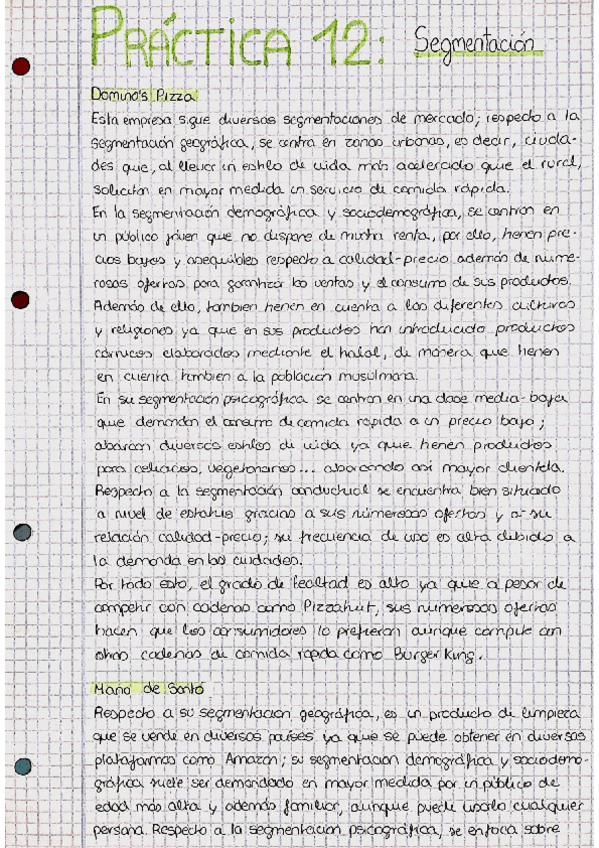 PRÁCTICA 12: Segmentación
Domino's Pizza
Esta empresa sigue diversas segmentaciones de mercado; respecto a la
segmentación geográfica, se centra en zonas urbanas, es decir, ciuda-
des que, al llevar un estilo de vida más acelerado que el rural,
solicitan en mayor medida un servicio de comida rápida.
En la segmentación demográfica y sociodemográfica, se centran en
un público joven que no dispone de mucha renta, por ello, tienen pre-
cios bajos y asequibles respecto a calidad-precio además de nume-
rosas ofertas para garantizar las ventas y el consumo de sus productos.
Además de ello, también tienen en cuenta a las diferentes culturas
y religiones ya que en sus productos han introducido productos
cárnicos elaborados mediante el halal, de manera que tienen
en cuenta también a la población musulmana.
En su segmentación psicográfica se centran en una clase media-baja
que demandan el consumo de comida rápida a un precio bajo;
abarcan diversos estilos de vida ya que tienen productos
para celiacos, vegetarianos... abarcando así mayor clientela.
Respecto a la segmentación conductual se encuentra bien situado
a nivel de estatus gracias a sus numerosas ofertas y a su
relación calidad-precio; su frecuencia de uso es alta debido a
la demanda en las ciudades.
Por todo esto, el grado de lealtad es alto ya que a pesar de
competir con cadenas como Pizzahut, sus numerosas ofertas
hacen que los consumidores lo prefieran aunque compite con
otras cadenas de comida rápida como Burger King.
Mano de Santo
Respecto a su segmentación geográfica, es un producto de limpieza
que se vende en diversos países ya que se puede obtener en diversas
plataformas como Amazon; su segmentación demográfica y sociodemo-
gráfica suele ser demandado en mayor medida por un público de
edad más alta y además familiar, aunque puede usarlo cualquier
persona. Respecto a la segmentación psicográfica, se enfoca sobre